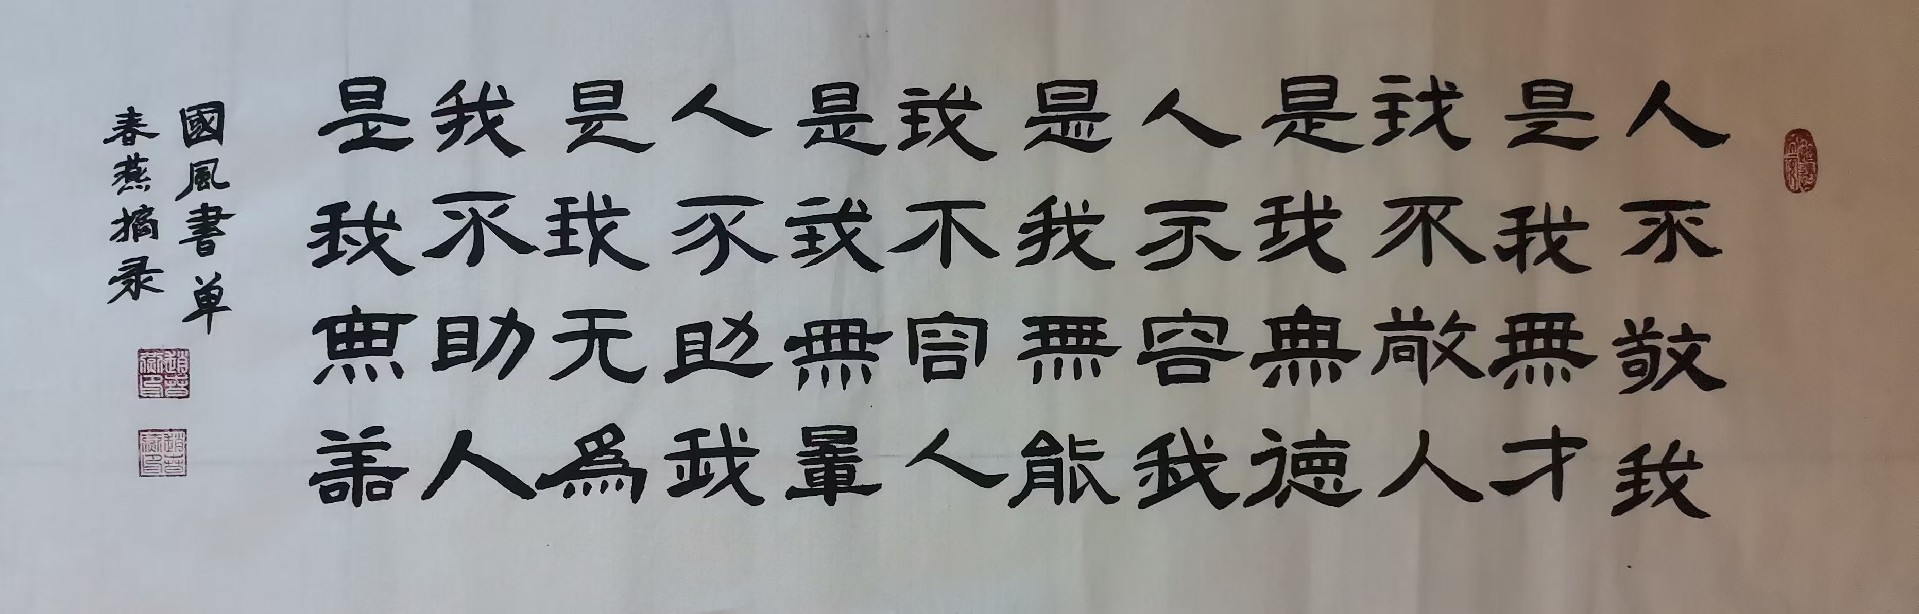 人不敬我
是我無才
我不敬人
是我無德
人不容我
是我無能
我不容人
是我無量
人不助我
是我无為
我不助人
是我無善
國風書单
春燕摘录